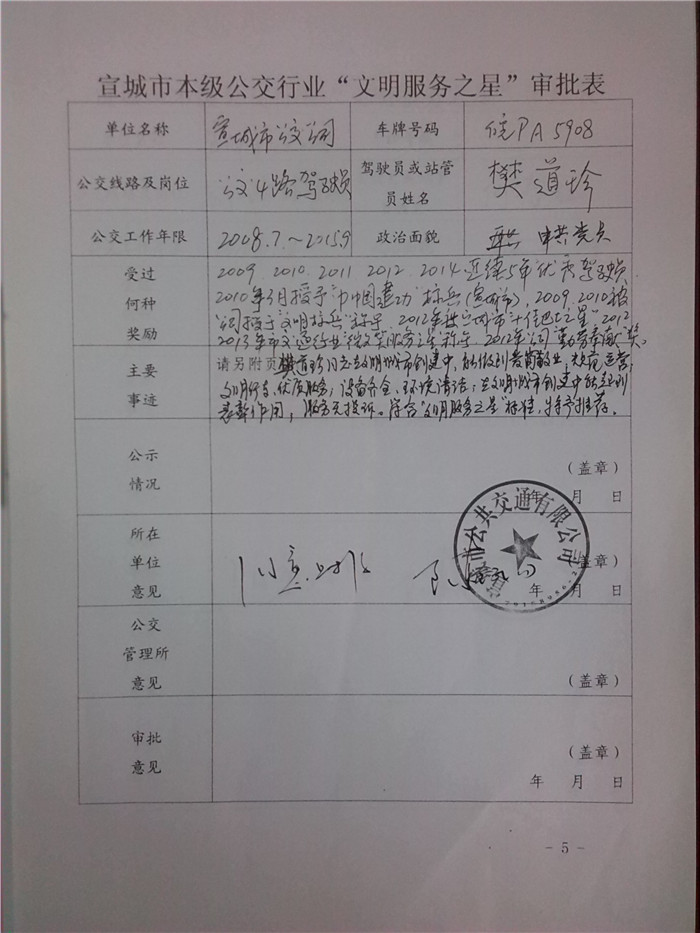 宣城市本级公交行业“文明服务之星”审批表
单位名称 宣城市公交公司 车牌号码 皖PA5908
公交线路及岗位 公交4路驾驶员 驾驶员或站管员姓名 樊道珍
公交工作年限 2008.7.~2015.9 政治面貌 中共党员
受过何种奖励
2009.2010.2011.2012.2014连续5年优秀驾驶员
2010年3月授予“巾帼建功”标兵(宣城市),2009.2010被
公司授予“文明标兵”称号,2012年被宣城市“十佳的士之星”2012
2013年市交通行业“微笑服务之星”称号.2012年公司“勤劳奉献”奖。
主要事迹
请另附页 樊道珍同志在文明城市创建中,能做到爱岗敬业,规范运营,
文明行车、优质服务,设备齐全,环境清洁;在文明城市创建中能起到
表率作用,服务无投诉。符合“文明服务之星”标准,特予推荐。
公示情况
(盖章)
年 月 日
所在单位意见
同意上报
市公共交通有限公司
(盖章)
年 月 日
公交管理所意见
(盖章)
审批意见
(盖章)
年 月 日
- 5 -